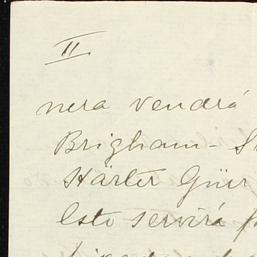 II
nera vendrá
Brigham-
Härter Güer
Esto servirá